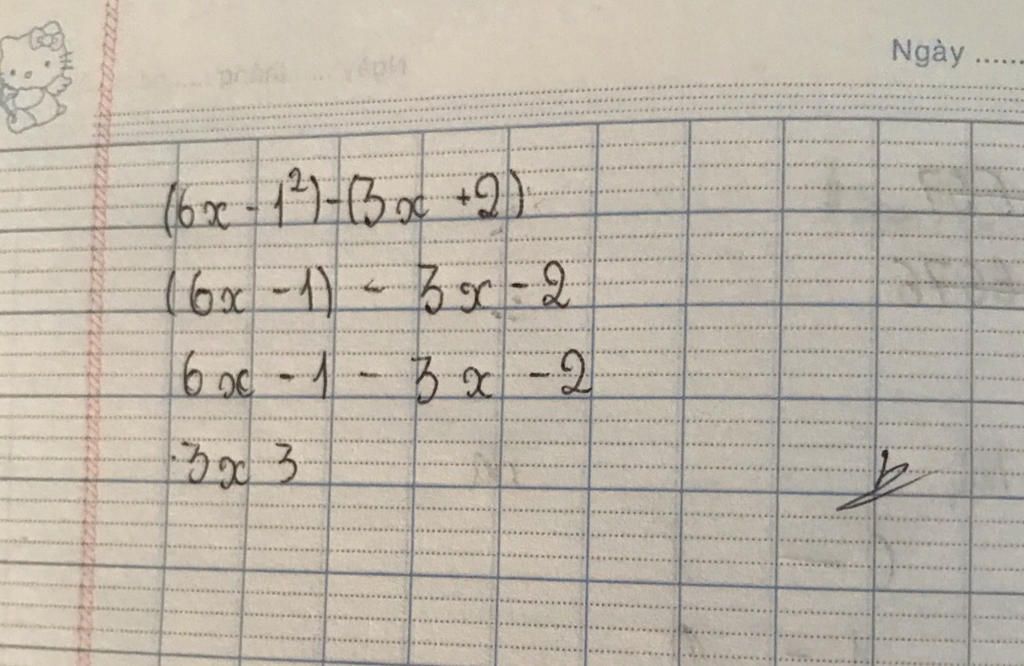 Ngày ......
(6x - 1²) - (3x + 2)
(6x - 1) - 3x - 2
6x - 1 - 3x - 2
3x 3